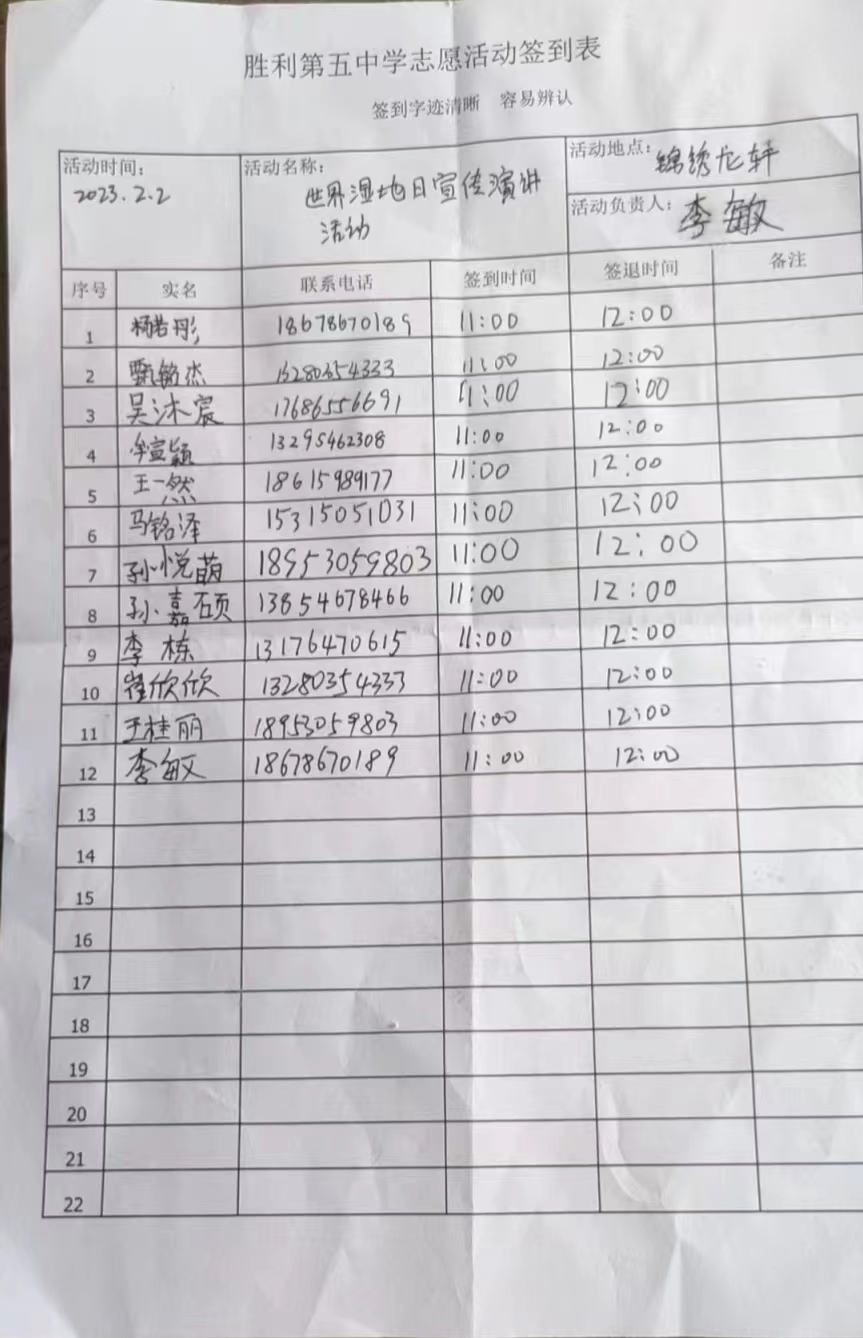 胜利第五中学志愿活动签到表
签到字迹清晰 容易辨认
活动时间: 活动名称: 活动地点: 锦绣龙轩
2023.2.2 世界湿地日宣传演讲
活动 活动负责人: 李敏
序号 实名 联系电话 签到时间 签退时间 备注
1 杨若彤 18678670189 11:00 12:00
2 甄铭杰 13280354333 11:00 12:00
3 吴沐宸 17686556691 11:00 12:00
4 牟宣颖 13295462308 11:00 12:00
5 王一然 18615989177 11:00 12:00
6 马铭泽 15315051031 11:00 12:00
7 孙悦萌 18953059803 11:00 12:00
8 孙嘉硕 13854678466 11:00 12:00
9 李栋 13176470615 11:00 12:00
10 崔欣欣 13280354333 11:00 12:00
11 王桂丽 18953059803 11:00 12:00
12 李敏 18678670189 11:00 12:00
13
14
15
16
17
18
19
20
21
22